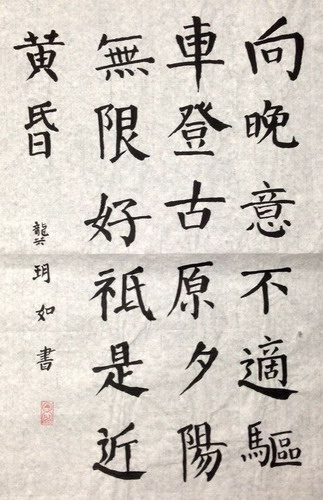 向晚意不適驅
車登古原夕陽
無限好祗是近
黃昏
玥如書